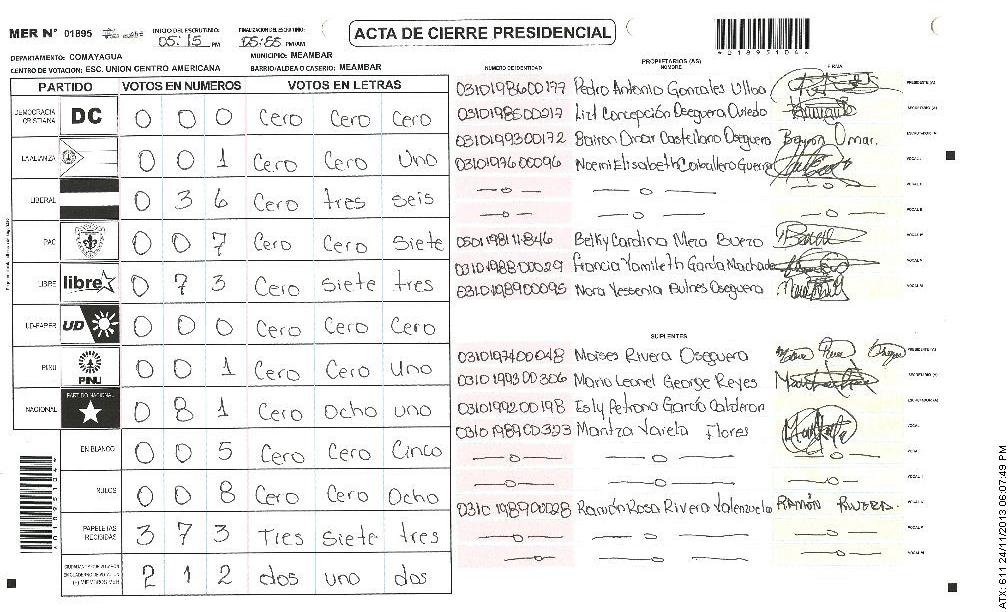 MER N° 01895 INICIO DEL ESCRUTINIO: 05:15 PM FINALIZACIÓN DEL ESCRUTINIO: 05:55 PM/AM
ACTA DE CIERRE PRESIDENCIAL
01895104
DEPARTAMENTO: COMAYAGUA MUNICIPIO: MEAMBAR
CENTRO DE VOTACION: ESC. UNION CENTRO AMERICANA BARRIO/ALDEA O CASERIO: MEAMBAR
PARTIDO VOTOS EN NUMEROS VOTOS EN LETRAS
DEMOCRACIA CRISTIANA DC 0 0 0 Cero Cero Cero
LA ALIANZA 0 0 1 Cero Cero Uno
LIBERAL 0 3 6 Cero tres seis
PAC 0 0 7 Cero Cero Siete
LIBRE libre 0 7 3 Cero Siete tres
UD-FAPER UD 0 0 0 Cero Cero Cero
PINU PINU 0 0 1 Cero Cero Uno
NACIONAL PARTIDO NACIONAL 0 8 1 Cero Ocho uno
EN BLANCO 0 0 5 Cero Cero Cinco
NULOS 0 0 8 Cero Cero Ocho
PAPELETAS RECIBIDAS 3 7 3 Tres Siete tres
2 1 2 dos uno dos
PROPIETARIOS (AS)
NUMERO DE IDENTIDAD NOMBRE FIRMA
0310198600177 Pedro Antonio Gonzales Ulloa PRESIDENTE (A)
0310198500217 Lizl Concepción Oseguera Oviedo SECRETARIO (A)
0310199300172 Bairon Omar Castellano Oseguera Bayron Omar. ESCRUTADOR (A)
0310197600096 Noemi Elisabeth Carballero Guerra VOCAL I
—o— —o— —o— VOCAL II
—o— —o— —o— VOCAL III
0501198111846 Belky Carolina Meza Buezo VOCAL IV
0310198800029 Francia Yamileth García Machado VOCAL V
0310198900095 Nora Yessenia Bulnes Oseguera VOCAL VI
SUPLENTES
0310197400048 Moises Rivera Oseguera PRESIDENTE (A)
0310199300306 Mario Leonel George Reyes SECRETARIO (A)
0310199200198 Esly Petrona García Calderon ESCRUTADOR (A)
0310198900323 Maritza Varela Flores VOCAL I
—o— —o— —o— VOCAL II
—o— —o— —o—
0310198900028 Ramón Rosa Rivera Valenzuela RAMÓN RIVERA. VOCAL IV
—o— —o— —o— VOCAL V
—o— —o— —o— VOCAL VI
01895104
ATX: 611 24/11/2013 06:07:49 PM